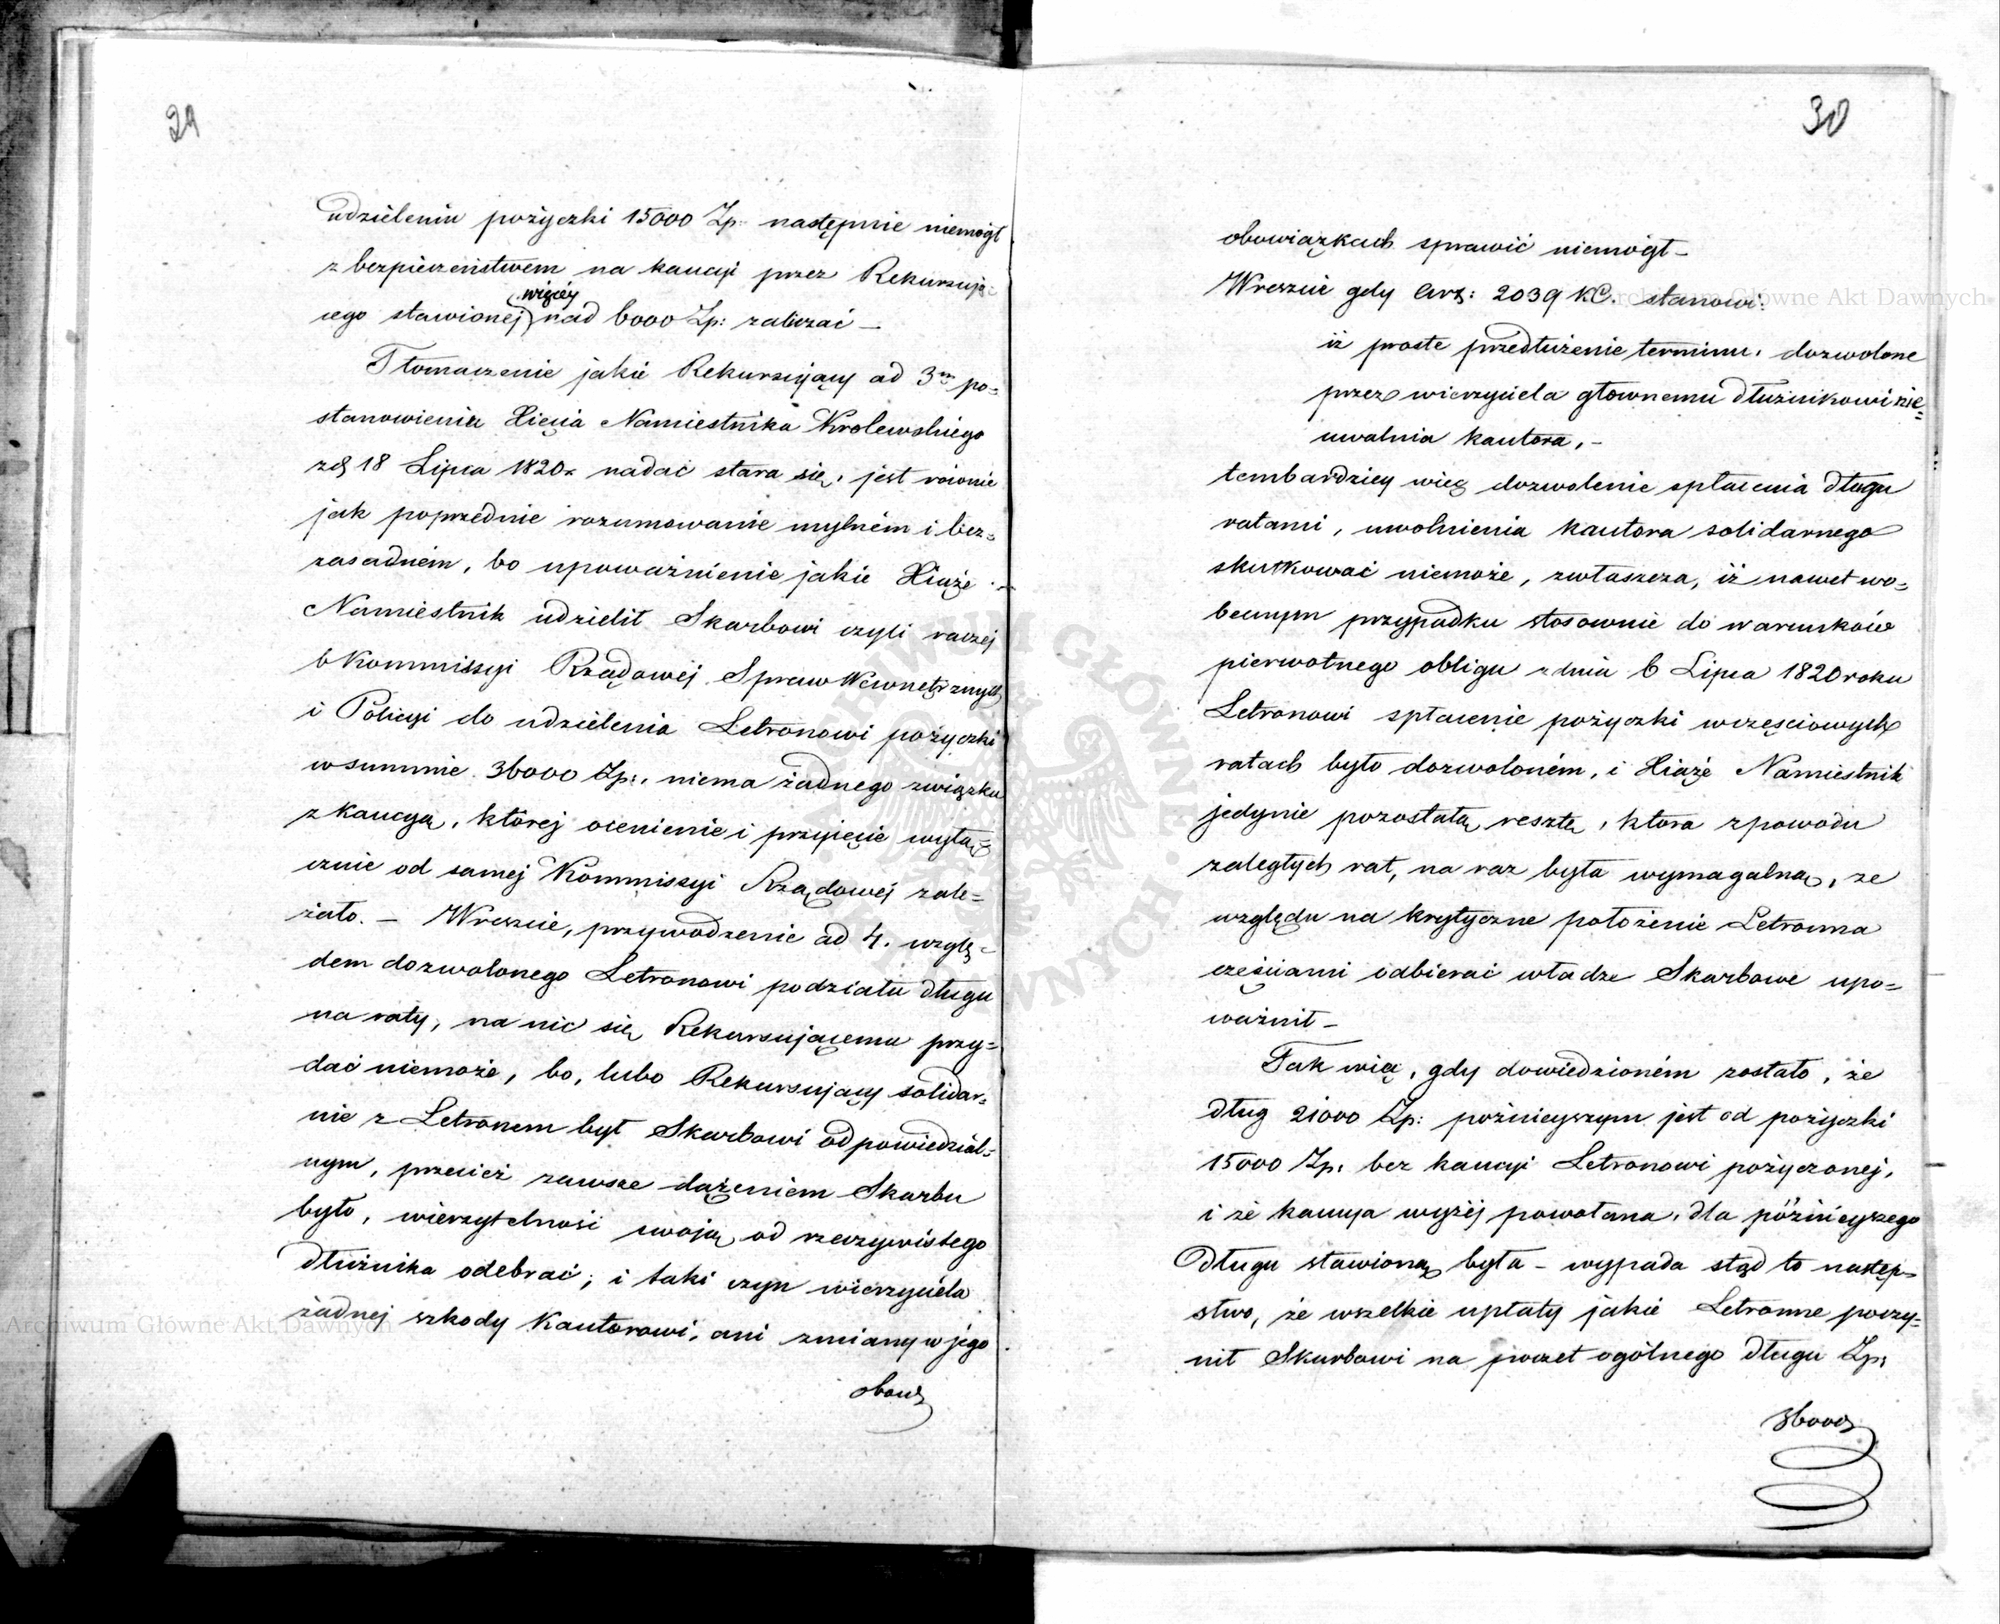 29
udzieleniu pożyczki 15000 Zp. następnie niemógł
z bezpieczeństwem na kaucyi przez Rekursują-
cego stawionej więcéy nad 6000 Zp: zaliczać –
Tłomaczenie jakie Rekursujący ad 3m po=
stanowieniu Xięcia Namiestnika Krolewskiego
zd 18 Lipca 1820r nadać stara się, jest róionie
jak poprzednie rozumowanie mylném i bez=
zasadném, bo upoważnienie jakie Xiąże
Namiestnik udzielił Skarbowi czyli raczej
Kommissyi Rządowéj Spraw Wewnętrznych
i Policyi do udzielenia Letronowi pożyczki
w summie 36000 Zp:, niema żadnego związku
z kaucyą, której ocenienie i przyięcie wyłą=
cznie od samej Kommissyi Rządowej zale=
żało. – Wreszcie, przywodzenie ad 4. wzglę=
dem dozwolonego Letronowi podziału długu
na raty, na nic się Rekursującemu przy=
dać niemoże, bo, lubo Rekursujący solidar=
nie z Letronem był Skarbowi odpowiedzial=
nym, przecież zawsze dążeniem Skarbu
było, wierzytelność swoją od rzeczywistego
dłużnika odebrać; i taki czyn wierzyciela
żadnej szkody Kautorowi, ani zmiany w jego
obow
30
obowiązkach sprawić niemógł –
Wreszcie gdy Art: 2039 KC. stanowi:
iż proste przedłużenie terminu, dozwolone
przez wierzyciela głownemu dłużnikowi nie=
uwalnia kautora, –
tembardziey więc dozwolenie spłacenia długu
ratami, uwolnienia kautora solidarnego
skutkować niemoże, zwłaszcza, iż nawet wo=
becnym przypadku stosownie do warunków
pierwotnego obligu z dnia 6 Lipca 1820 roku
Letronowi spłacenie pożyczki w częściowych
ratach było dozwoloném, i Xiąże Namiestnik
jedynie pozostałą resztę, ktora z powodu
zaległych rat, na raz była wymagalną, ze
względu na krytyczne położenie Letronna
częściami odbierać władze Skarbowe upo=
ważnił –
Tak więc, gdy dowiedzioném zostało, że
dług 21000 Zp: pożnieyszym jest od pożyczki
15000 Zp: bez kaucyi Letronowi pożyczonej,
i że kaucya wyżéj powołana, dla późnieyszego
długu stawioną była – wypada stąd to następ=
stwo, że wszelkie upłaty jakie Letronne poczy=
nił Skarbowi na poczet ogólnego długu Zp:
36000
Archiwum Główne Akt Dawnych
Archiwum Główne Akt Dawnych